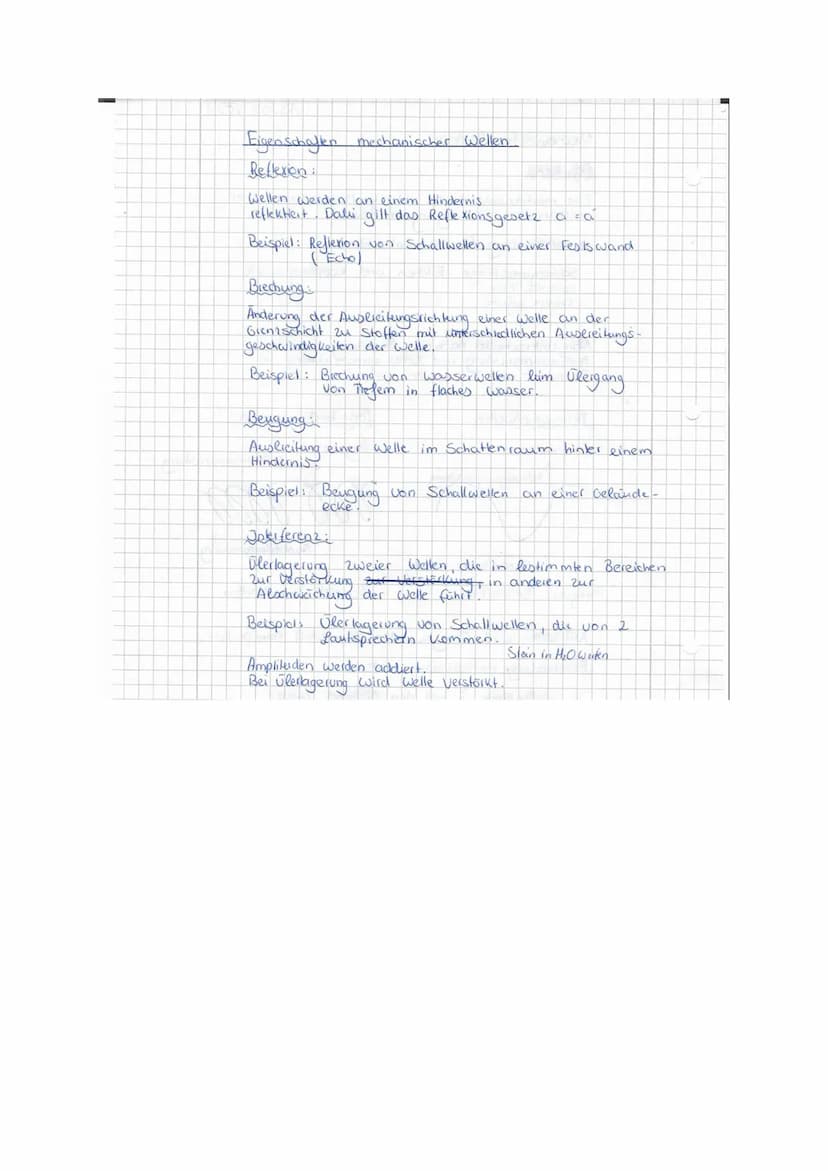 Eigenschaften mechanischer Wellen
Reflexion:
Wellen werden an einem Hindernis
reflektiert. Dabei gilt das Reflexionsgesetz a = a'
Beispiel: Reflexion von Schallwellen an einer Felswand
(Echo)
Brechung:
Änderung der Ausbreitungsrichtung einer Welle an der
Grenzschicht zu Stoffen mit unterschiedlichen Ausbreitungs-
geschwindigkeiten der Welle.
Beispiel: Brechung von Wasserwellen beim Übergang
von Tiefem in flaches Wasser.
Beugung:
Ausbreitung einer Welle im Schattenraum hinter einem
Hindernis.
Beispiel: Beugung von Schallwellen an einer Gelände-
ecke.
Interferenz:
Überlagerung zweier Wellen, die in bestimmten Bereichen
zur Verstärkung zur Verstärkung, in anderen zur
Abschwächung der Welle führt.
Beispiel: Überlagerung von Schallwellen, die von 2
Lautsprechern kommen.
Stein in H₂O werfen
Amplituden werden addiert.
Bei Überlagerung wird Welle verstärkt.